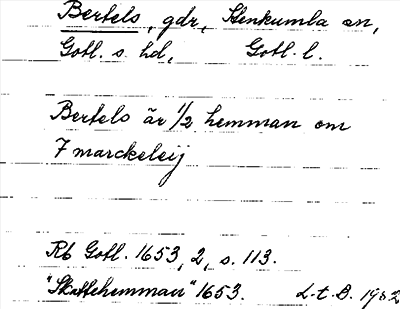 Bertels, gdr, Stenkumla sn,
Gotl. s. hd, Gotl. l.
Bertels är 1/2 hemman om
7 marckeleij
Rb Gotl. 1653, 2, s. 113.
"Skattehemman" 1653. L.t.B. 1982